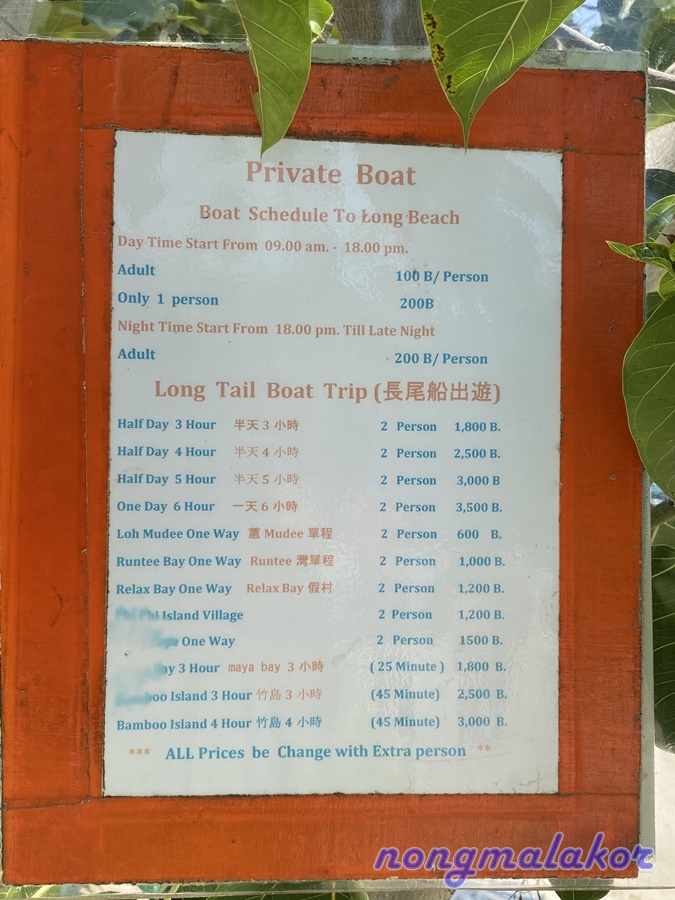 Private Boat
Boat Schedule To Long Beach
Day Time Start From 09.00 am. - 18.00 pm.
Adult 100 B/ Person
Only 1 person 200B
Night Time Start From 18.00 pm. Till Late Night
Adult 200 B/ Person
Long Tail Boat Trip (長尾船出遊)
Half Day 3 Hour 半天 3 小時 2 Person 1,800 B.
Half Day 4 Hour 半天 4 小時 2 Person 2,500 B.
Half Day 5 Hour 半天 5 小時 2 Person 3,000 B
One Day 6 Hour 一天 6 小時 2 Person 3,500 B.
Loh Mudee One Way 蕙 Mudee 單程 2 Person 600 B.
Runtee Bay One Way Runtee 灣單程 2 Person 1,000 B.
Relax Bay One Way Relax Bay 假村 2 Person 1,200 B.
Phi Phi Island Village 2 Person 1,200 B.
One Way 2 Person 1500 B.
3 Hour maya bay 3 小時 ( 25 Minute ) 1,800 B.
Bamboo Island 3 Hour 竹島 3 小時 (45 Minute) 2,500 B.
Bamboo Island 4 Hour 竹島 4 小時 (45 Minute) 3,000 B.
*** ALL Prices be Change with Extra person **
nongmalakor